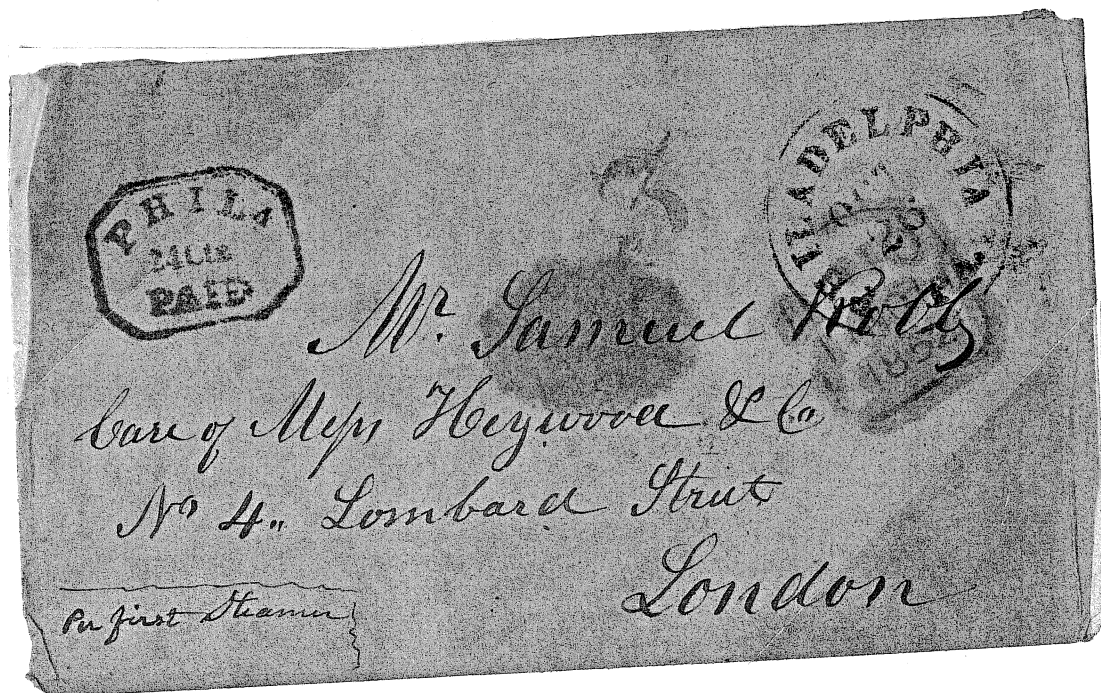 PHILA
24Cts
PAID
PHILADELPHIA
OCT
28
PA.
Mr. Samuel
Care of Mess Heywood & Co.
No 4. Lombard Street
London
Per first Steamer